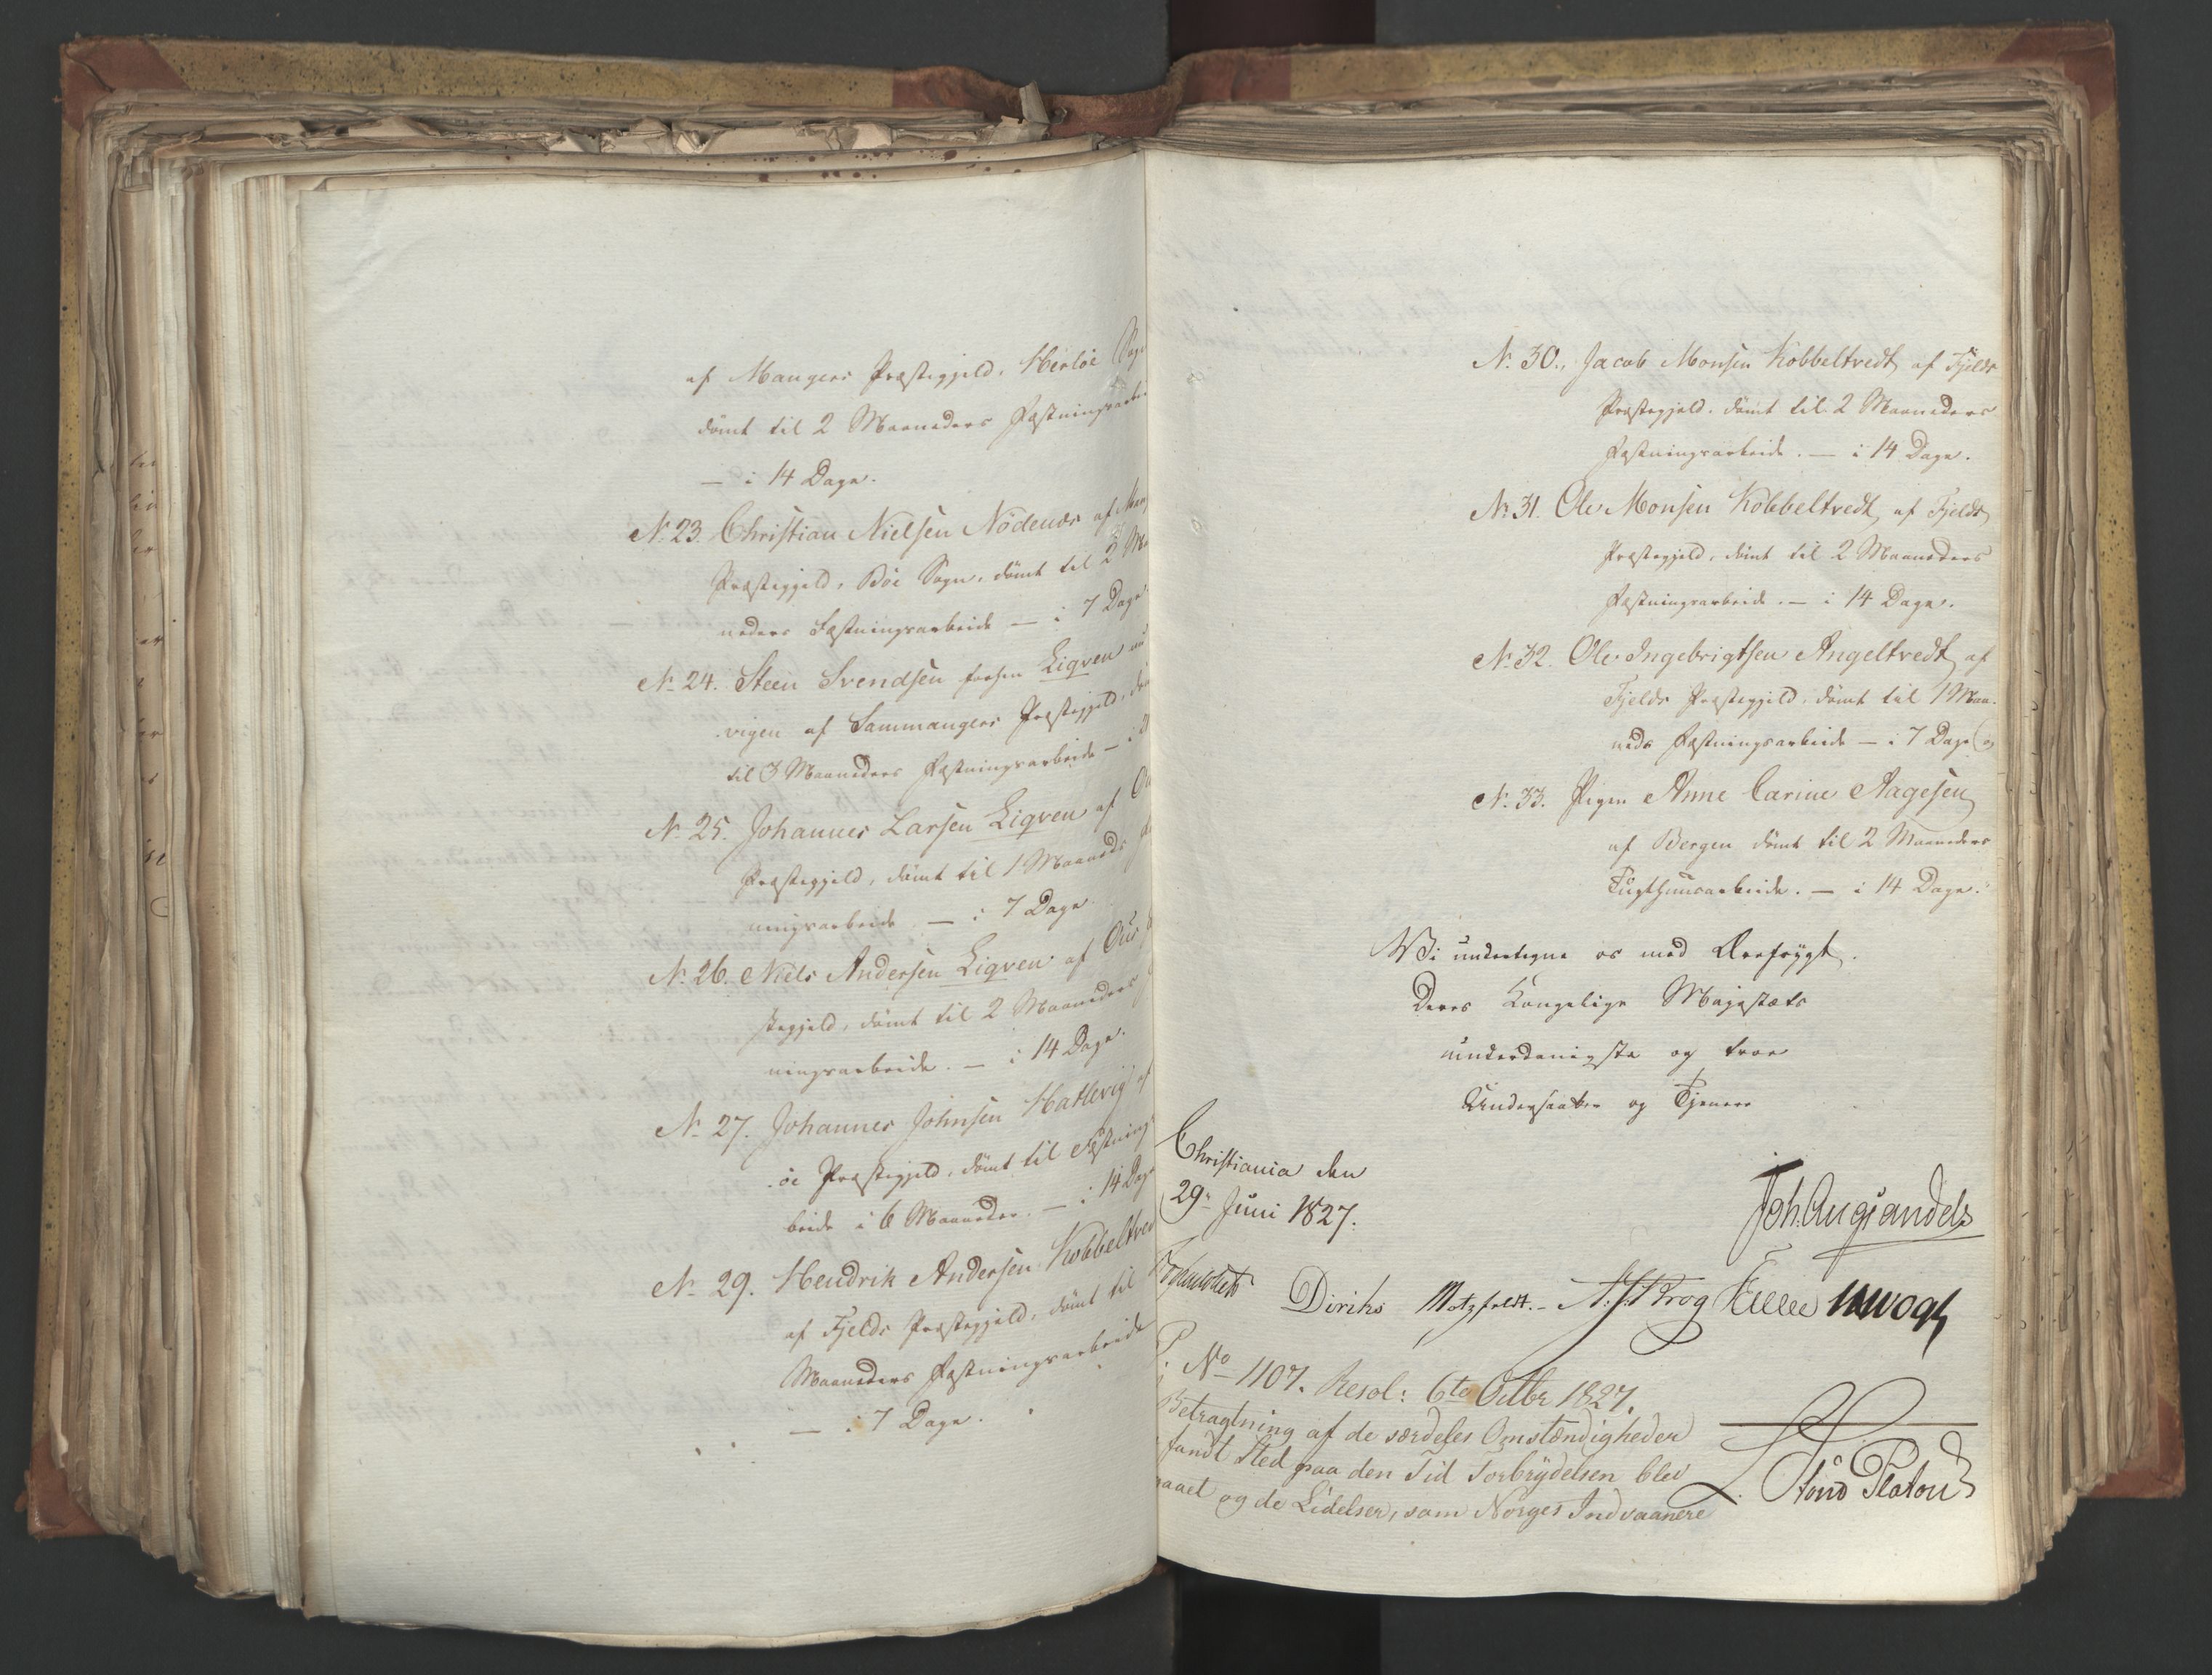 af Mangers Præstegjeld, Herløe Sogn
dömt til 2 Maaneders Fæstningsarbei
— i 14 Dage.
No 23. Christian Nielsen Nödenæs af Man
Præstegjeld, Böe Sogn, dömt til 2 Ma
neders Fæstningsarbeide — i 7 Dage.
No 24. Steen Svendsen forhen Liqven nu
vigen af Sammangers Præstegjeld, dö
til 3 Maaneders Fæstningsarbeide — i 21
No 25. Johannes Larsen Liqven af Ou
Præstegjeld, dömt til 1 Maaneds
ningsarbeide — i 7 Dage.
No 26. Niels Andersen Liqven af Ous
stegjeld, dömt til 2 Maaneders
ningsarbeide. — i 14 Dage.
No 27. Johannes Johnsen Hatlevig af
öe Præstegjeld, dömt til Fæstnings
beide i 6 Maaneder. — i 14 Dage
No 29. Hendrik Andersen Kobbeltved
af Fjelds Præstegjeld, dömt til
Maaneders Fæstningsarbeide
— i 7 Dage.
No 30., Jacob Monsen Kobbeltvedt af Fjelds
Præstegjeld, dömt til 2 Maaneders
Fæstningsarbeide. — i 14 Dage.
No 31. Ole Monsen Kobbeltvedt af Fjelds
Præstegjeld, dömt til 2 Maaneders
Fæstningsarbeide. — i 14 Dage.
No 32. Ole Ingebrigtsen Angeltvedt af
Fjelds Præstegjeld, dömt til 1 Maa-
neds Fæstningsarbeide — i 7 Dage og
No 33. Pigen Anne Carine Aagesen
af Bergen dömt til 2 Maaneders
Tugthuusarbeide. — i 14 Dage."
Vi undertegne os med Ærefrygt.
Deres Kongelige Majestæts
underdanigste og troe
Undersaatter og Tjenere
Christiania den
29de Juni 1827.
Joh. Aug: Sandels
Diriks Motzfeldt. — A. J. Krog Fasting JHVogt
No 1107. Resol: 6te Octbr 1827.
Betragtning af de særdeles Omstændigheder
fandt Sted paa den Tid Forbrydelsen blev
gaaet og de Lidelser, som Norges Indvaanere
Stoud Platou